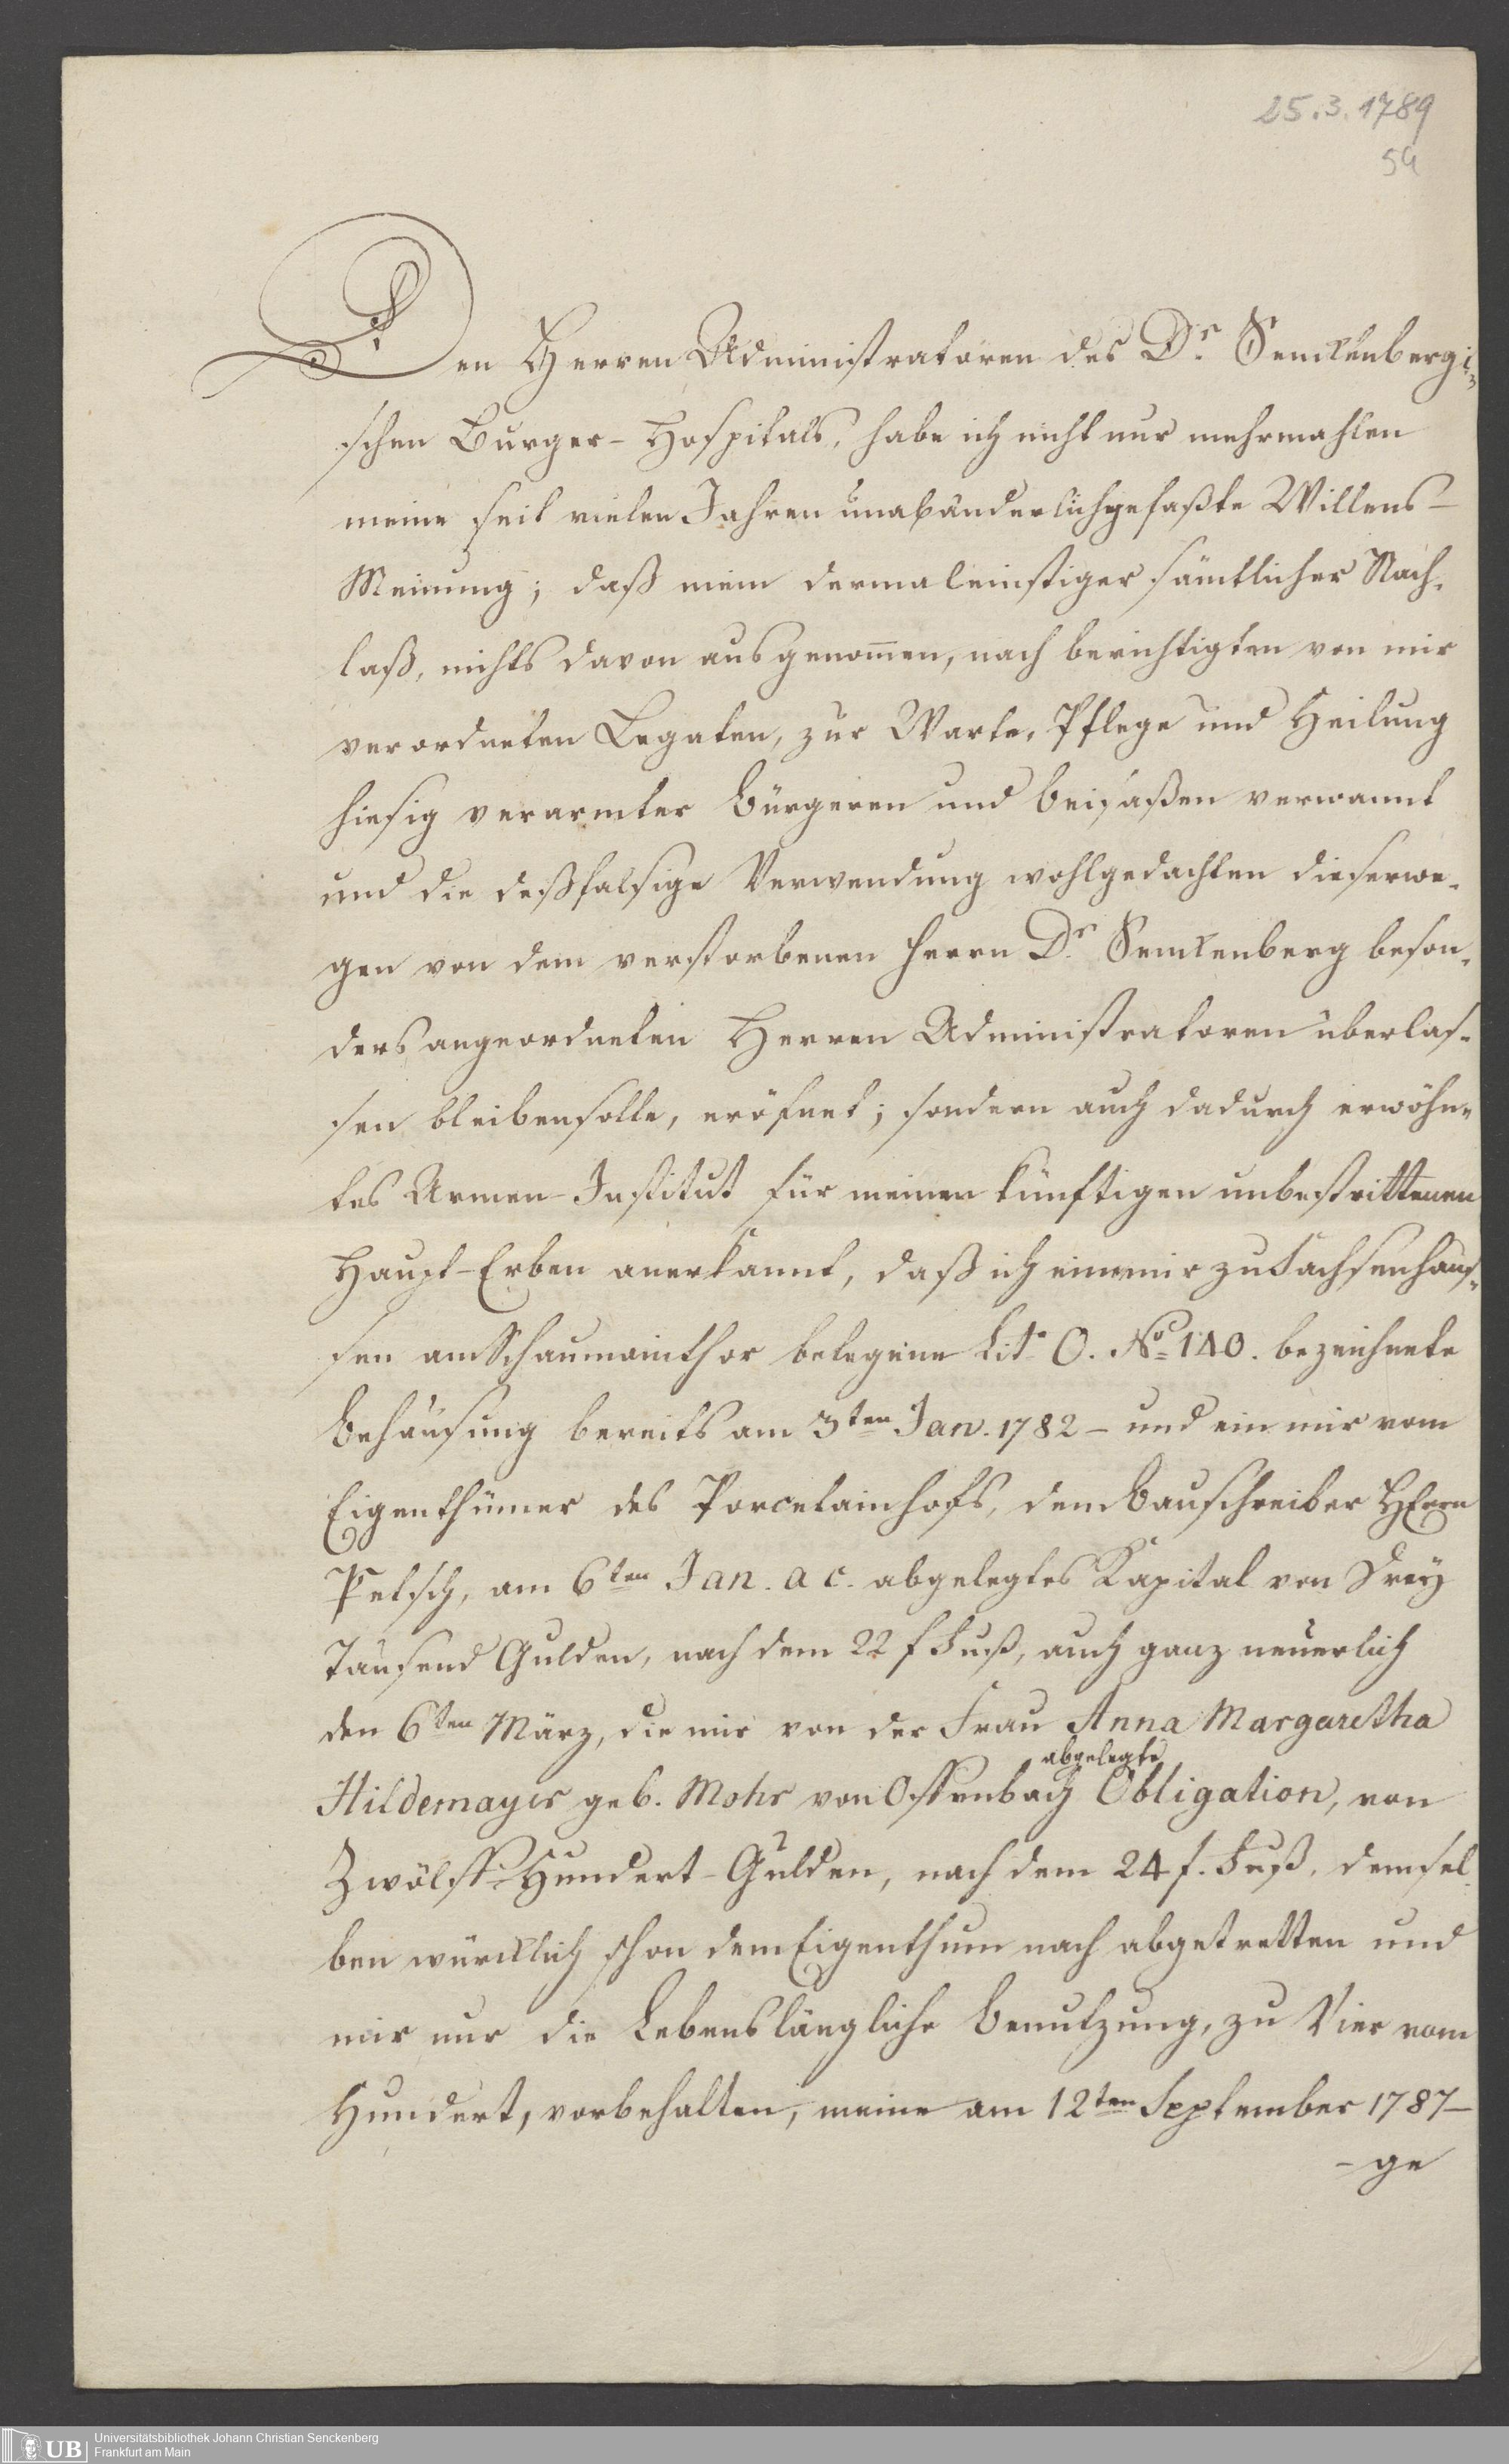 25.3.1789
59
Den Herren Administratoren des Dr. Senckenbergi-
schen Burger-Hospitals, habe ich nicht nur mehrmahlen
meine seit vielen Jahren unabänderlichgefaßte Willens-
Meinung; daß mein dermaleinstiger sämtlicher Nach-
laß, nichts davon ausgenom̅en, nach berichtigten von mir
verordneten Legaten, zur Warte, Pflege und Heilung
hiesig verarmter Bürgeren und Beisaßen verwannt
und die deßfalsige Verwendung wohlgedachten dieserwe-
gen von dem verstorbenen Herrn Dr. Senckenberg beson-
ders angeordneten Herren Administratoren überlas-
sen bleiben solle, eröfnet; sondern auch dadurch erwöhn-
tes Armen-Institut für meinen künftigen unbestrittenen
Haupt-Erben anerkannt, daß ich eine mir zu Sachsenhau-
sen am Schaumainthor belegene Lit. O. No. 140. bezeichnete
Behausung bereits am 3ten Jan. 1782 – und ein mir vom
Eigenthümer des Porcelainhofs, dem Bauschreiber HErrn
Petsch, am 6ten Jan. a c. abgelegtes Kapital von Drey
Tausend Gulden, nach dem 22 f Fuß, auch ganz neuerlich
den 6ten März, die mir von der Frau Anna Margaretha
abgelegte
Hildemayer geb. Mohr von Offenbach Obligation, von
Zwölff-Hundert-Gulden, nach dem 24 f. Fuß, demsel-
ben würcklich schon dem Eigenthum nach abgetretten und
mir nur die Lebenslängliche Benutzung, zu Vier vom
Hundert, vorbehalten, meine am 12ten September 1787 –
- ge
UB Universitätsbibliothek Johann Christian Senckenberg
Frankfurt am Main